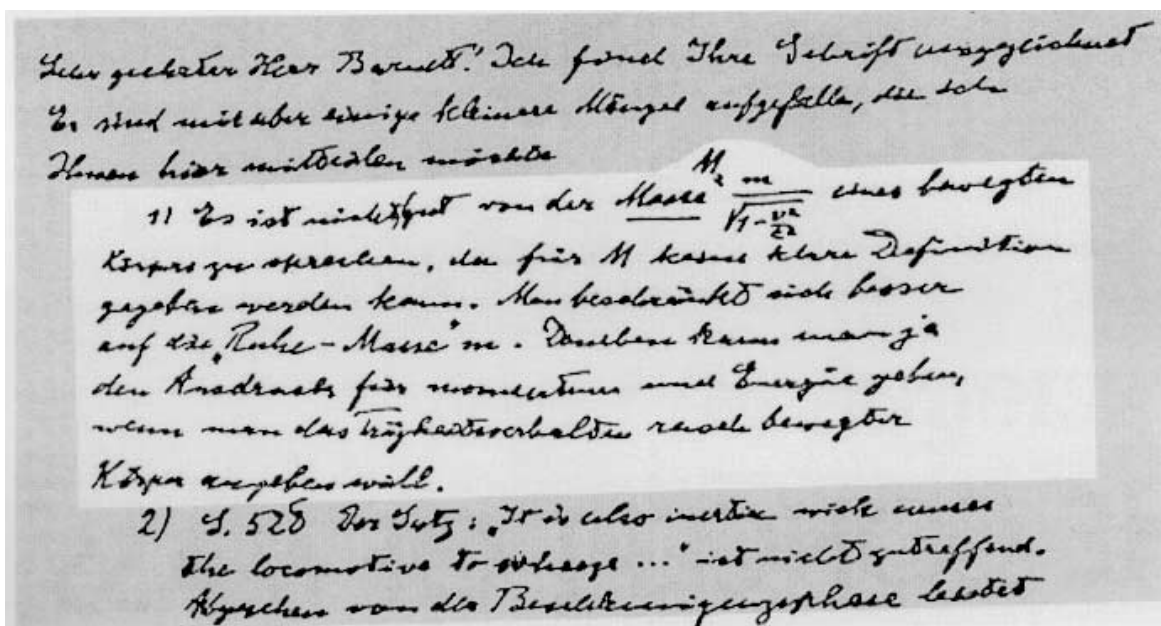 Sehr geehrter Herr Barnett! Ich find Ihre Schrift ausgezeichnet
Es sind mir aber einige kleinere Mängel aufgefalle, die ich
Ihnen hier mitteilen möchte
1) Es ist nicht gut von der Masse M = m/√(1 - v²/c²) eines bewegten
Körpers zu sprechen, da für M keine klare Definition
gegeben werden kann. Man beschränkt sich besser
auf die „Ruhe-Masse" m. Daneben kann man ja
den Ausdruck für momentum und Energie geben,
wenn man das Trägheitsverhalten rasch bewegter
Körper angeben will.
2) S. 528 Der Satz: „It is also inertia wich causes
the locomotive to ..." ist nicht zutreffend.
Abgesehen von der Beschleunigungsphase